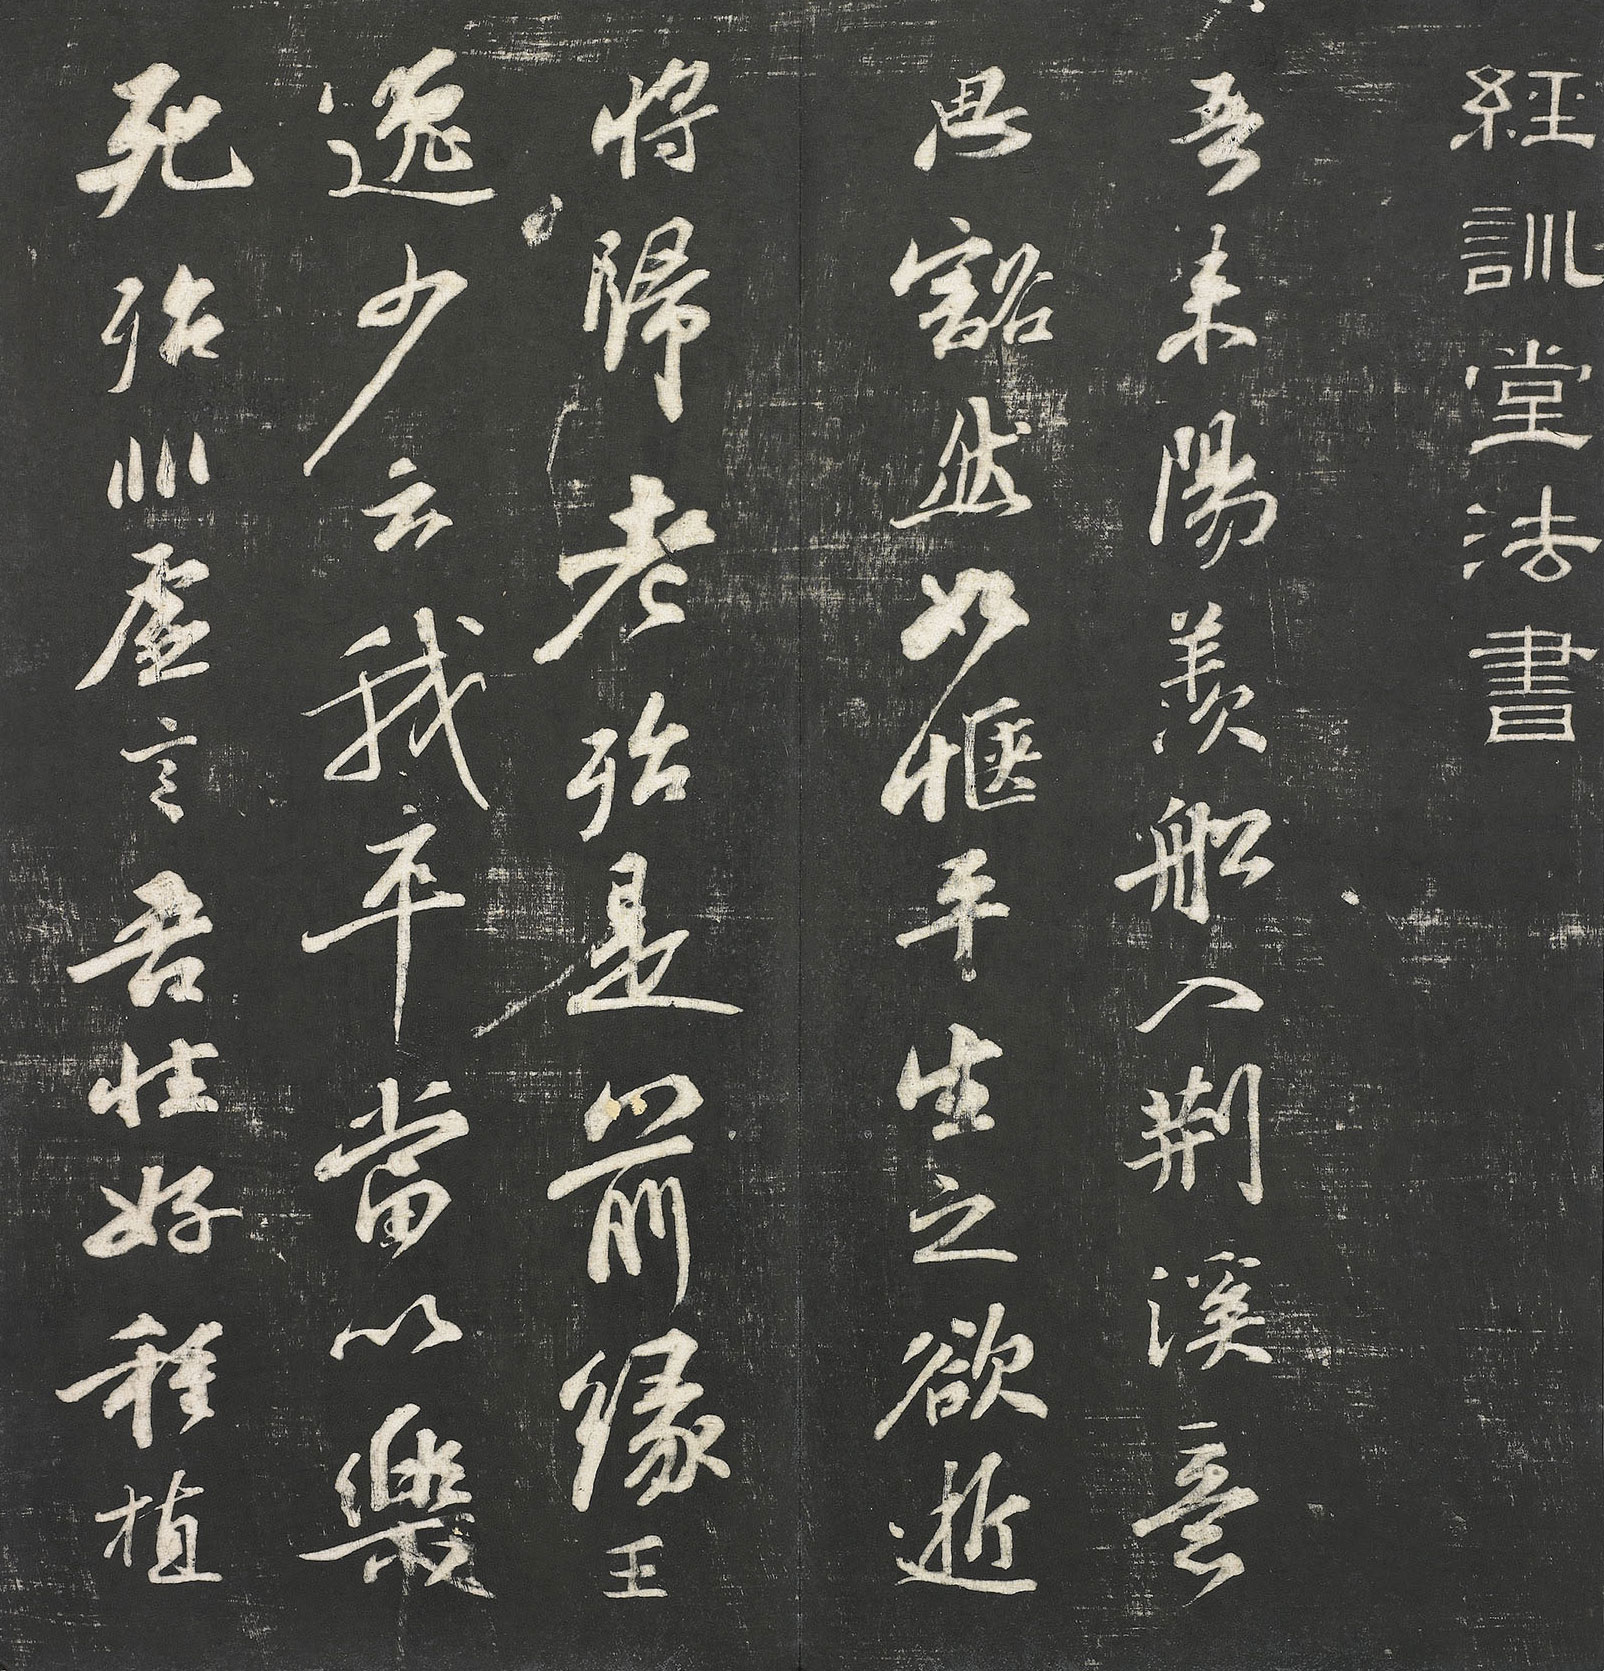 經訓堂法書
吾来陽羨船入荊溪意
思豁然如惬平生之欲逝
将歸老殆是前緣王
逸少云我卒當以樂
死殆非虛言吾性好種植